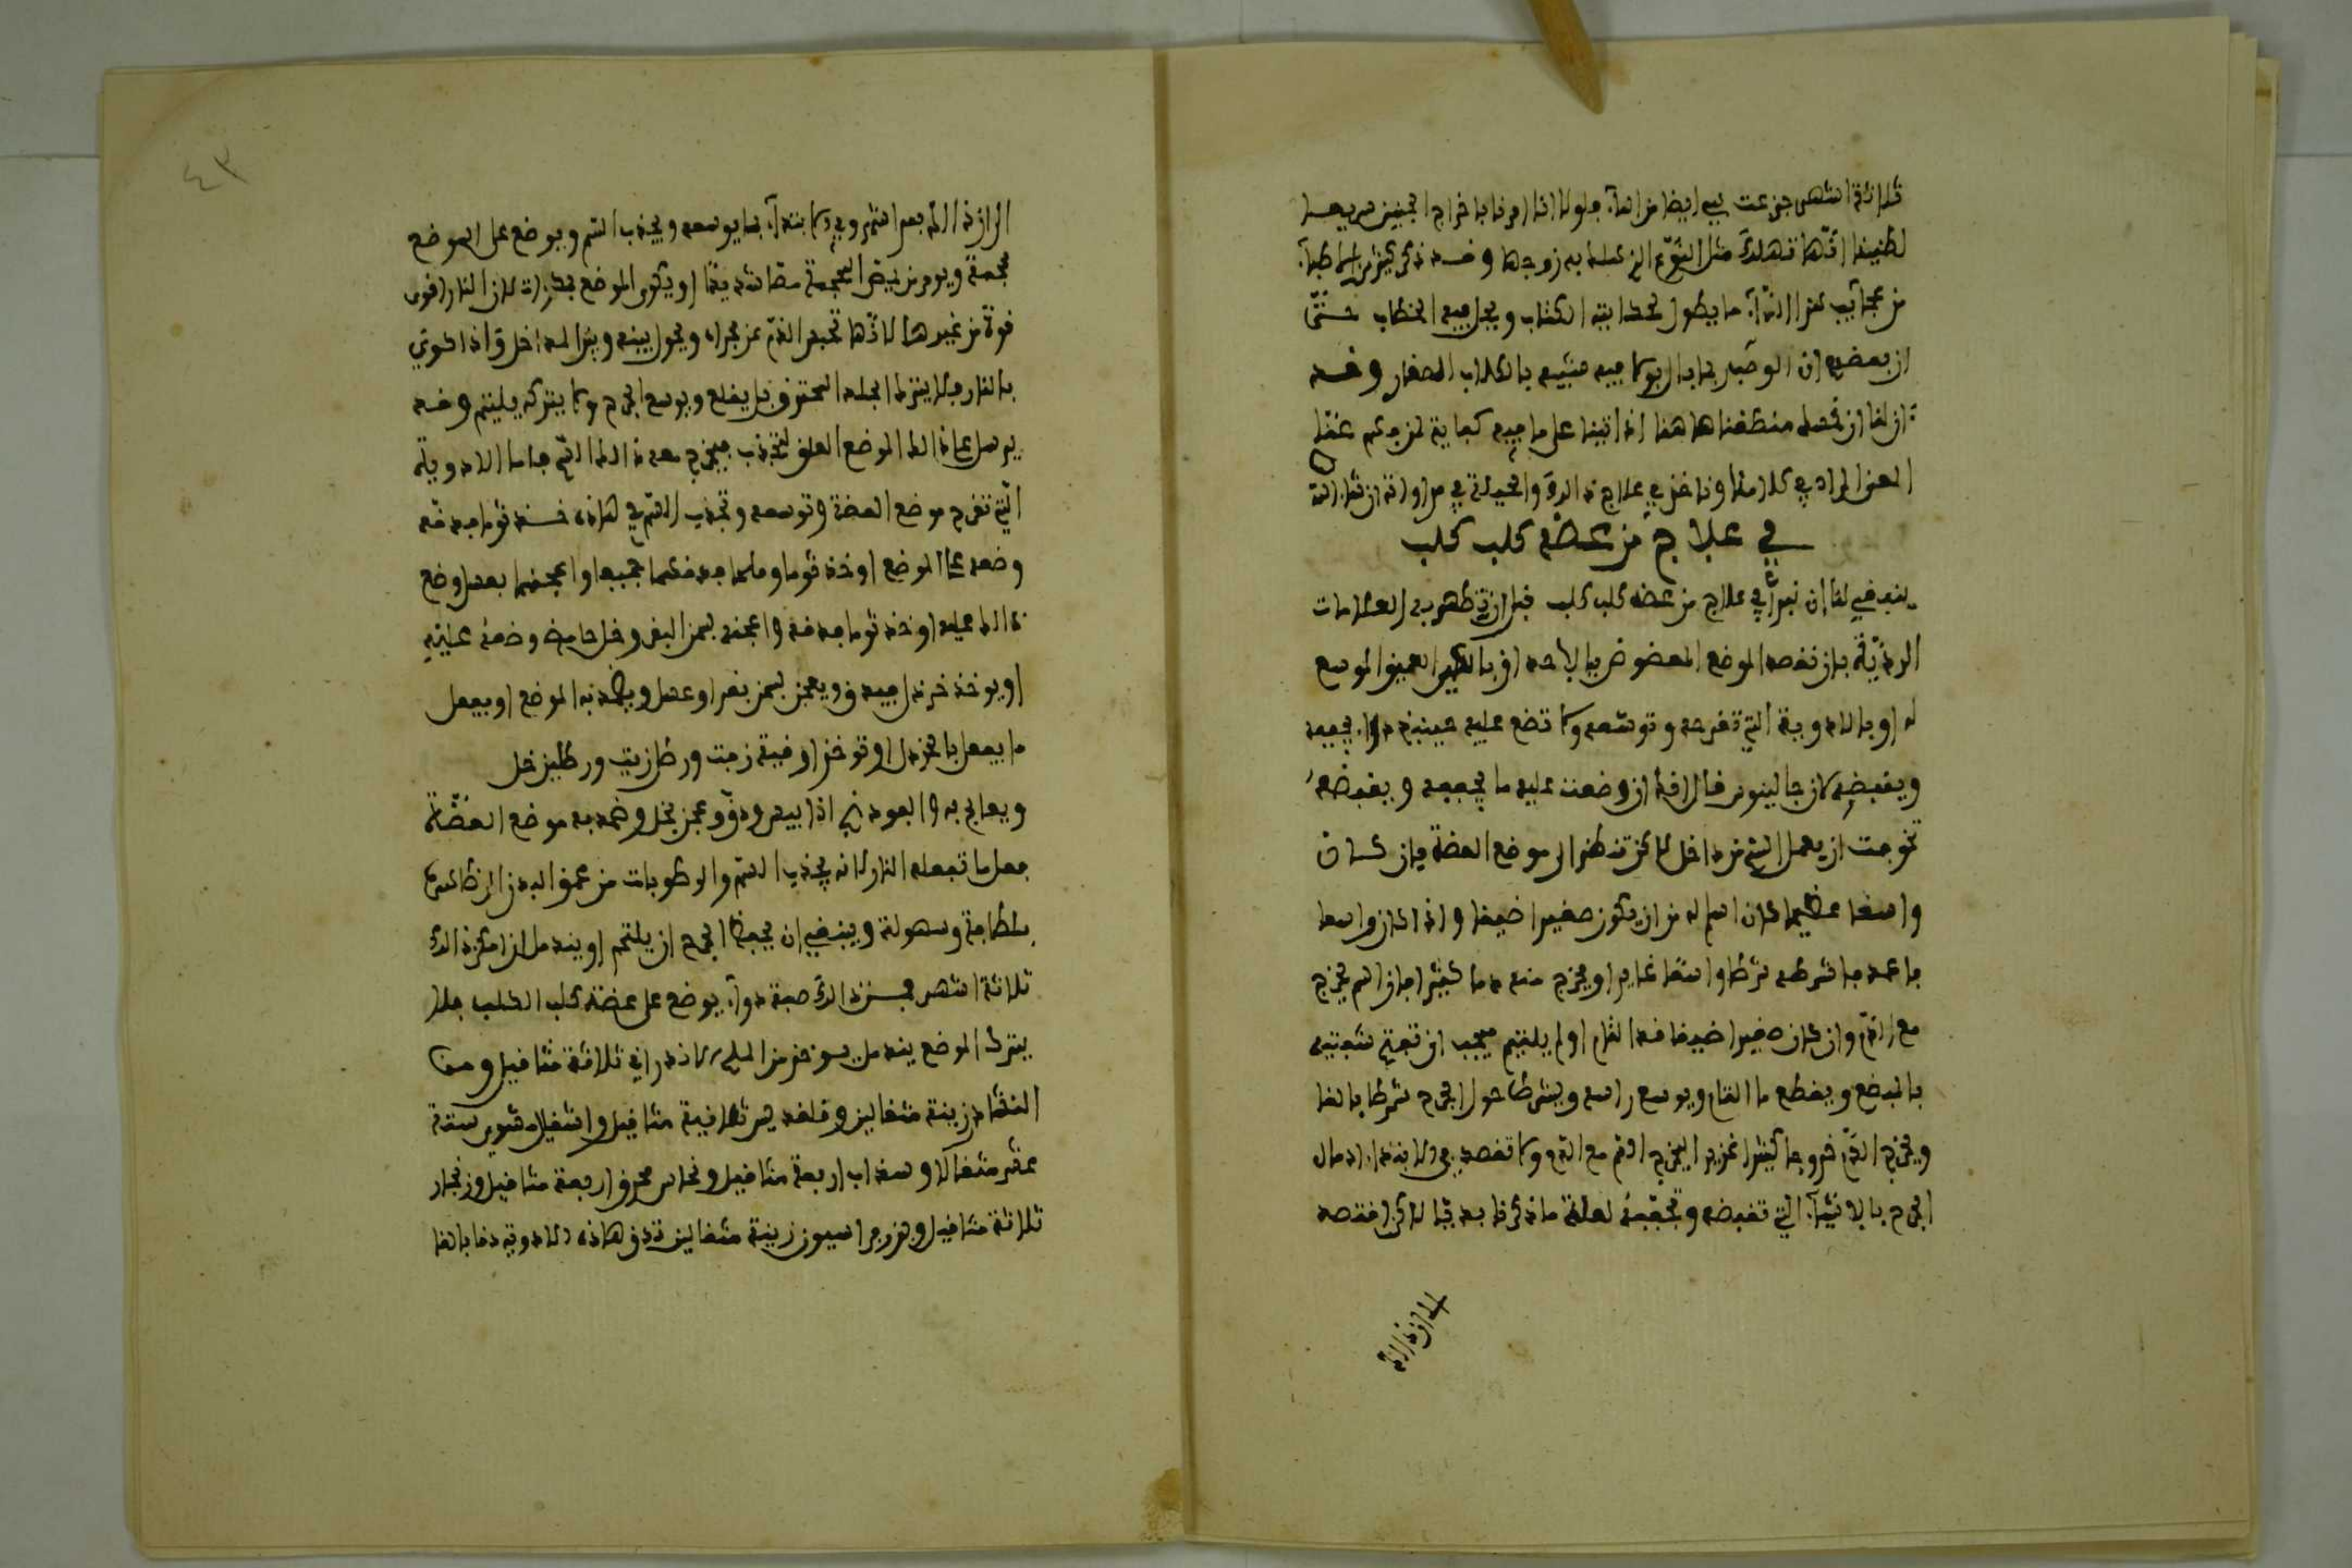 ثلاثة اشهر جزعت ايضا من الماء فلولا انا امرنا باخراج الجنين سريعا
لظننا انها تهلك مثل النوع الذي هلك به زوجها وقد ذكر كثير من الاطباء
من عجائب هذا الداء ما يطول بحكايته الكتاب ويحل فيه الخطاب حتى
ان بعضهم ان الوصب ربما بال يوما فيه شبيه بالكلاب الصغار وقد
ان لنا ان نحصل منطقنا هاهنا اذ اتينا على ما فيه كفاية لمن فهم عنا
المعنى المراد في كلامنا وناخذ في علاج ذلك والحيلة في مداواته ان شاء الله
في علاج من عضه كلب كلب
ينبغي لنا ان نبدأ في علاج من عضه كلب كلب قبل ان تظهر به العلامات
الردية بان تقصد الموضع المعضوض بالحديد او بالكي العميق الموسع
له او بالادوية التي تقرحه وتوسعه ولا تضع عليه حينئذ دواء يجففه
ويقبضه لان جالينوس قال انه ان وضعت عليه ما يجففه ويقبضه
تخوفت ان يعمل السم من داخل لكن تنظر الى موضع العضة فان كان
واسعا عظيما كان اسلم له من ان يكون صغيرا ضيقا واذا كان واسعا
فاعمد فاشرطه شرطا واسعا غايرا ويخرج منه دما كثيرا فان السم يخرج
مع الدم وان كان صغيرا ضيقا قد التام او لم يلتيم فيجب ان تفتح شفتيه
بالمبضع ويقطع ما التام ويوسع راسه ويشرط حول الجرح شرطا بالغا
ويخرج الدم خروجا كثيرا غزيرا ليخرج السم مع الدم ولا تقصد في الابتداء ادمال
الجرح بالاشياء التي تقبضه وتجففه لعلة ما ذكرنا بعد قبل لكن اقصد
الى ازدياد
الى ازدياد الدم بعد الشرط وفي الابتداء بما يوسعه ويجذب السم ويوضع على الموضع
محجمة ويومر من يمص المحجمة مصا شديدا او يكوى الموضع بحديدة لان النار اقوى
قوة من غيرها لانها تحبس الدم عن مجراه ويحول بينه وبين المداخل واذا كوي
بالنار فلا ينزل الجلد المحترق بل يقلع ويوسع الجرح ولا يتركه يلتيم وقد
يرسل على ذلك الموضع العلق لتجذب فيخرج معه ذلك السم فاما الادوية
التي تقرح موضع العضة وتوسعه وتجذب السم في هذه خذ ثوما فدقه
وضعه على الموضع او خذ ثوما وملحا فدقهما جميعا واعجنهما بعسل وضع
ذلك عليه او خذ ثوما فدقه واعجنه بسمن البقر وخل حامض وضعه عليه
او يوخذ خردل فيدق ويعجن بسمن بقر او عسل ويضمد به الموضع او يفعل
ما يفعل بالخردل او توخذ اوقية زفت ورطل زيت ورطلين خل
ويعالج به والفودنج اذا يبس ودق وعجن بخل وضمد به موضع العضة
فعل ما تفعله النار لانه يجذب السم والرطوبات من عمق البدن الى ظاهره
بلطافة وسهولة وينبغي ان يحفظ الجرح ان يلتحم او يندمل ان امكن ذلك
ثلاثة اشهر فمن ذلك صفة دواء يوضع على عضة كلب الكلب فلا
يترك الموضع يندمل يوخذ من الملح الاندراني ثلاثة مثاقيل ومن
النشادر زينة مثقالين وقلقديس ثمانية مثاقيل واشقيل مشوي ستة
عشر مثقالا وسذاب اربعة مثاقيل ونحاس محرق اربعة مثاقيل وزنجار
ثلاثة مثاقيل وبزر فراسيون زينة مثقالين تدق هذه الادوية دقا بالغا
٤٣